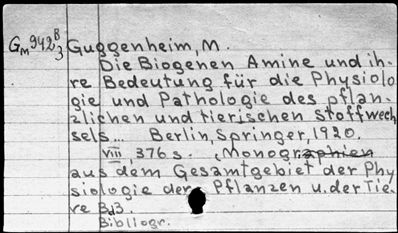 Gm942 8/3 Guggenheim, M.
Die Biogenen Amine und ih-
re Bedeutung für die Physiolo
gie und Pathologie des pflan-
zlichen und tierischen Stoffwech
sels... Berlin, Springer, 1920.
VIII, 376 s. (Monographien
aus dem Gesamtgebiet der Phy
siologie der Pflanzen u. der Tie-
re Bd3.
Bibliogr.